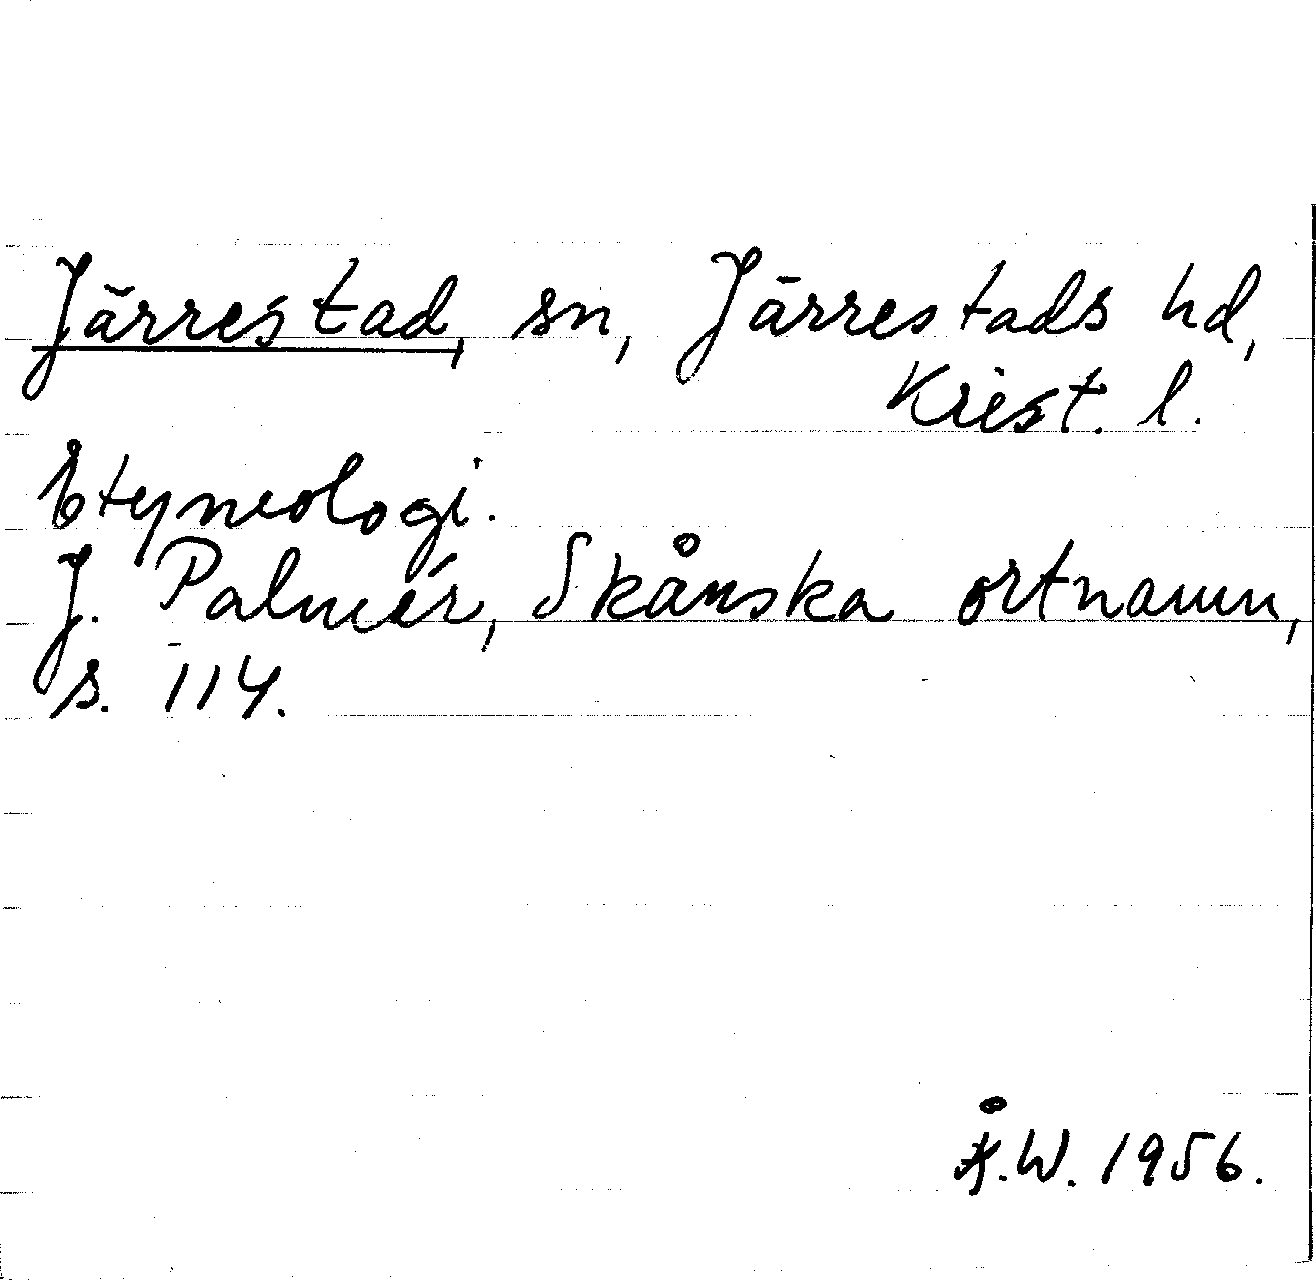 Järrestad, sn, Järrestads hd,
Krist. l.
Etymologi.
J. Palmér, Skånska ortnamn,
s. 114.
Å.W. 1956.